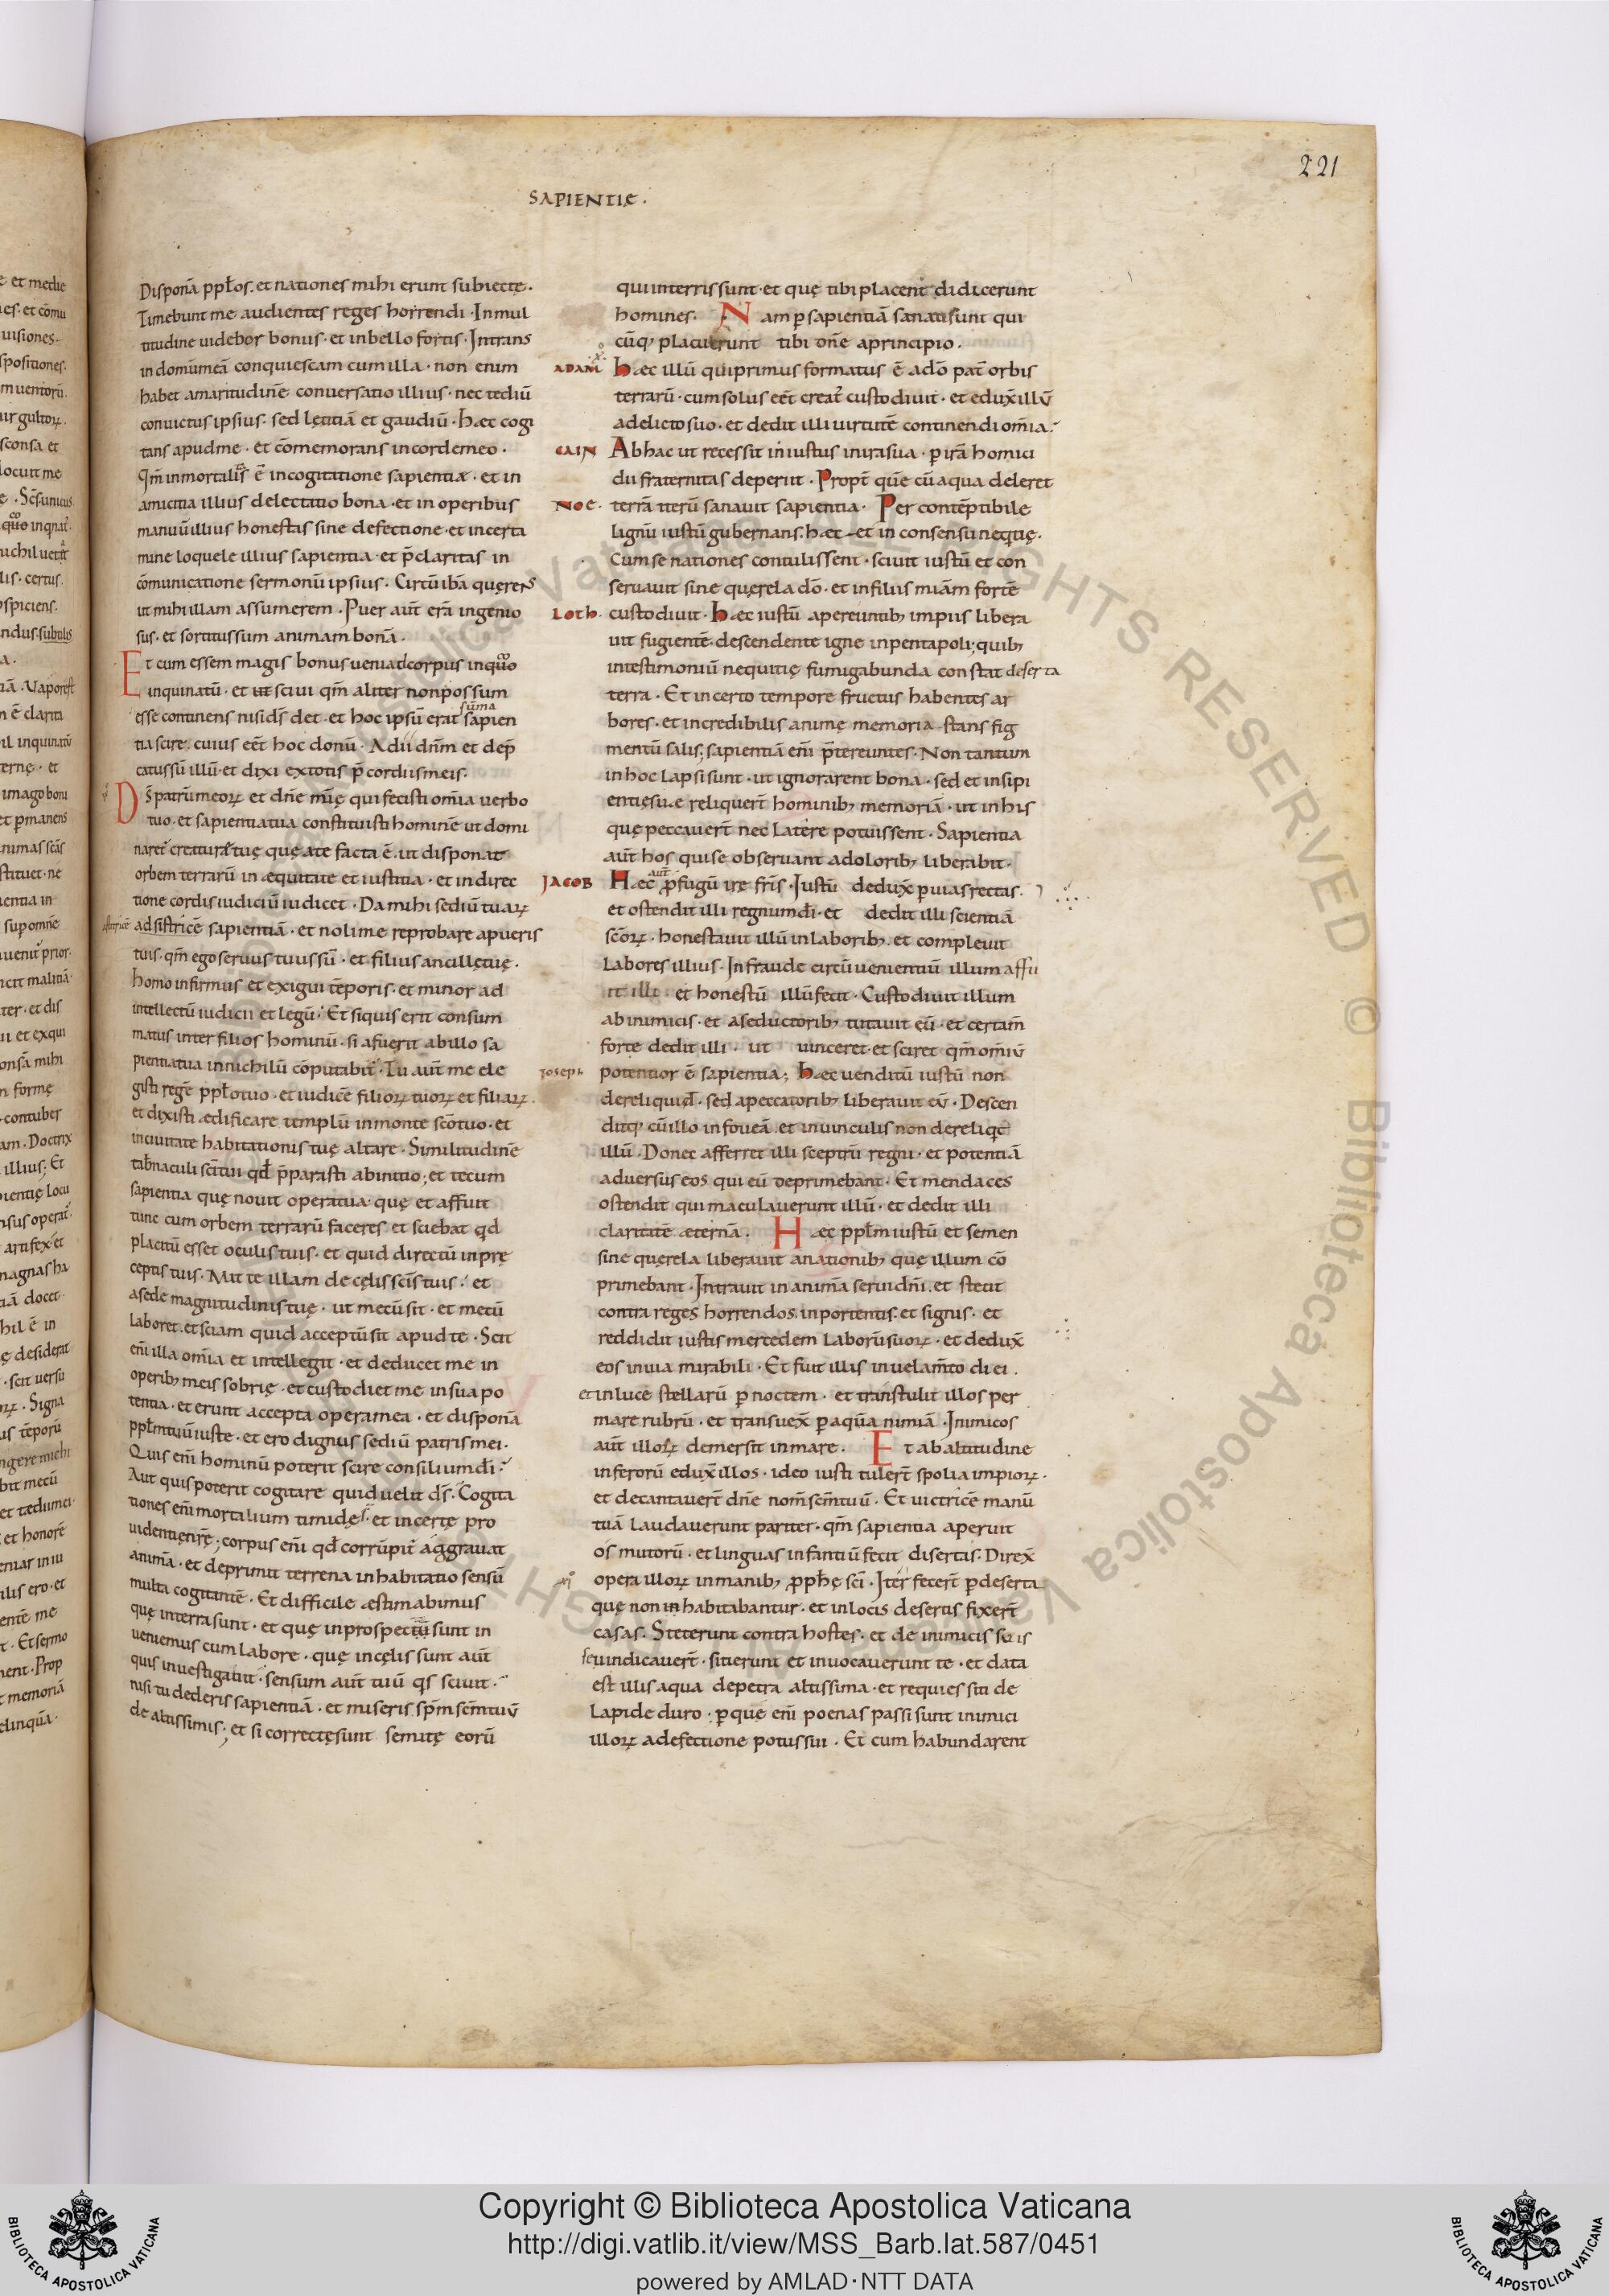 221
SAPIENTIĘ.
Disponā ppłos. et nationes mihi erunt subiectę.
Timebunt me audientes reges horrendi. In mul
titudine uidebor bonus. et in bello fortis. Intrans
in domū meā conquiescam cum illa. non enim
habet amaritudinē conversatio illius. nec tediū
convictus ipsius. sed lętitiā et gaudiū. hæc cogi
tans apud me. et cōmemorans in corde meo.
Qm̄ inmortalis ē in cogitatione sapientiæ. et in
amicitia illius delectatio bona. et in operibus
manuū illius honestas sine defectione et in certa
mine loquele illius sapientia. et p̄claritas in
cōmunicatione sermonū ipsius. Circūibā quęrens
ut mihi illam assumerem. Puer aut̄ erā ingenio
sus. et sortitus sum animam bonā.
Et cum essem magis bonus veni ad corpus inquo
inquinatū. et ut scivi qm̄ aliter non possum
esse continens nisi ds̄ det. et hoc ipsū erat sapien
suma
tia scire. cuius eēt hoc donū. Adii dn̄m et dep̄
catus sū illū. et dixi ex totis p̄cordiis meis.
Ds̄ patrū meoꝝ et dn̄e mię qui fecisti om̄ia verbo
tuo. et sapientia tua constituisti hominē ut domi
naret creaturę tuę quę a te facta ē. ut disponat
orbem terrarū in æquitate et iustitia. et in direc
tione cordis iudiciū iudicet. Da mihi sediū tuaꝝ
adsistricē sapientiā. et noli me reprobare a pueris
tuis. qm̄ ego servus tuus sū. et filius ancillę tuę.
homo infirmus et exigui tēporis. et minor ad
intellectū iudicii et legū. Et si quis erit consum
matus inter filios hominū. si afuerit ab illo sa
pientia tua in nichilū cōputabit̄. Tu aut̄ me ele
gisti regē ppło tuo. et iudicē filioꝝ tuoꝝ et filiaꝝ.
et dixisti ædificare templū in monte scō tuo. et
in civitate habitationis tuę altare. Similitudinē
tab̄naculi sc̄i tui qd̄ p̄parasti ab initio; et tecum
sapientia quę novit opera tua. quę et affuit
tunc cum orbem terrarū faceres et sciebat qd
placitū esset oculis tuis. et quid directū in prę
ceptis tuis. Mitte illam de cęlis sc̄is tuis. et
a sede magnitudinis tuę. ut mecū sit. et mecū
laboret. et sciam quid acceptū sit apud te. Scit
eni illa om̄ia et intellegit. et deducet me in
operibꝫ meis sobrię. et custodiet me in sua po
tentia. et erunt accepta opera mea. et disponā
ppłm tuū iuste. et ero dignus sediū patris mei.
Quis eni hominū poterit scire consilium dī?
Aut quis poterit cogitare quid velit ds̄. Cogita
tiones eni mortalium timidę. et incertę pro
videntię nr̄ę; corpus eni qd̄ corrūpit̄ aggravat
animā. et deprimit terrena inhabitatio sensū
multa cogitantē. Et difficile æstimabimus
quę in terra sunt. et quę in prospectu sunt in
veniemus cum labore. quę in cęlis sunt aut̄
quis investigavit. sensum aut̄ tuū qs scivit.
nisi tu dederis sapientiā. et miseris sp̄m sc̄m tuū
de altissimis; et si correctę sunt semitę eorū
qui in terris sunt. et quę tibi placent didicerunt
homines. Nam p sapientiā sanati sunt qui
cūqꝫ placuerunt tibi dn̄e a principio.
ADAM hæc illū qui primus formatus ē a dō pat̄ orbis
terrarū. cum solus eēt creat̄ custodivit. et edux̄ illū
a delicto suo. et dedit illi virtutē continendi om̄ia.
CAIN Ab hac ut recessit iniustus in ira sua. p irā homici
dii fraternitas deperiit. Propt̄ quē cū aqua deleret
NOE. terrā iterū sanavit sapientia. Per contēptibile
lignū iustū gubernans. hæc et in consensu neqtię.
Cum se nationes contulissent. scivit iustū et con
servavit sine querela dō. et in filiis miām fortē
Loth. custodivit. hæc iustū a pereuntibꝫ impiis libera
vit fugientē. descendente igne in pentapoli; quibꝫ
in testimoniū nequitię fumigabunda constat deserta
terra. Et incerto tempore fructus habentes ar
bores. et incredibilis animę memoria stans fig
mentū salis; sapientiā eni p̄tereuntes. Non tantum
in hoc lapsi sunt. ut ignorarent bona. sed et insipi
entię suę reliquert̄ hominibꝫ memoriā. ut in his
quę peccavert̄ nec latere potuissent. Sapientia
aut̄ hos qui se observant a doloribꝫ liberabit.
aut̄
JACOB Hæc p̄fugū irę fr̄is. Iustū dedux̄ p vias rectas.
et ostendit illi regnum dī. et dedit illi scientiā
sc̄oꝝ. honestavit illū in laboribꝫ. et complevit
labores illius. In fraude circū venientiū illum affu
it illi. et honestū illū fecit. Custodivit illum
ab inimicis. et a seductoribꝫ tutavit eū. et certam̄
forte dedit illi. ut vinceret. et sciret qm̄ om̄iū
Joseph potentior ē sapientia; hæc venditū iustū non
dereliquid. sed a peccatoribꝫ liberavit eū. Descen
ditqꝫ cū illo in foveā. et in vinculis non dereliqt
illū. Donec afferret illi sceptrū regni. et potentiā
adversus eos qui eū deprimebant. Et mendaces
ostendit qui maculaverunt illū. et dedit illi
claritatē æternā. Hæc ppłm iustū et semen
sine querela liberavit a nationibꝫ quę illum cō
primebant. Intravit in animā servi dn̄i. et stetit
contra reges horrendos. in portentis. et signis. et
reddidit iustis mercedem laborū suoꝝ. et dedux̄
eos in via mirabili. Et fuit illis in velam̄to diei.
et in luce stellarū p noctem. et transtulit illos per
mare rubrū. et transvex̄ p aquā nimiā. Inimicos
aut̄ illoꝝ demersit in mare. Et ab altitudine
inferorū edux̄ illos. ideo iusti tulert̄ spolia impioꝝ.
et decantavert̄ dn̄e nom̄ sc̄m tuū. Et victricē manū
tuā laudaverunt pariter. qm̄ sapientia aperuit
os mutorū. et linguas infantiū fecit disertas. Direx̄
opera illoꝝ in manibꝫ pphę sc̄i. Iter fecert̄ p deserta
quę non inhabitabantur. et in locis desertis fixert̄
casas. Steterunt contra hostes. et de inimicis suis
se vindicavert̄. sitierunt et invocaverunt te. et data
est illis aqua de petra altissima. et requies siti de
lapide duro. p quę eni poenas passi sunt inimici
illoꝝ a defectione potus sui. Et cum habundarent
Copyright © Biblioteca Apostolica Vaticana
http://digi.vatlib.it/view/MSS_Barb.lat.587/0451
powered by AMLAD·NTT DATA
BIBLIOTECA APOSTOLICA VATICANA
BIBLIOTECA APOSTOLICA VATICANA